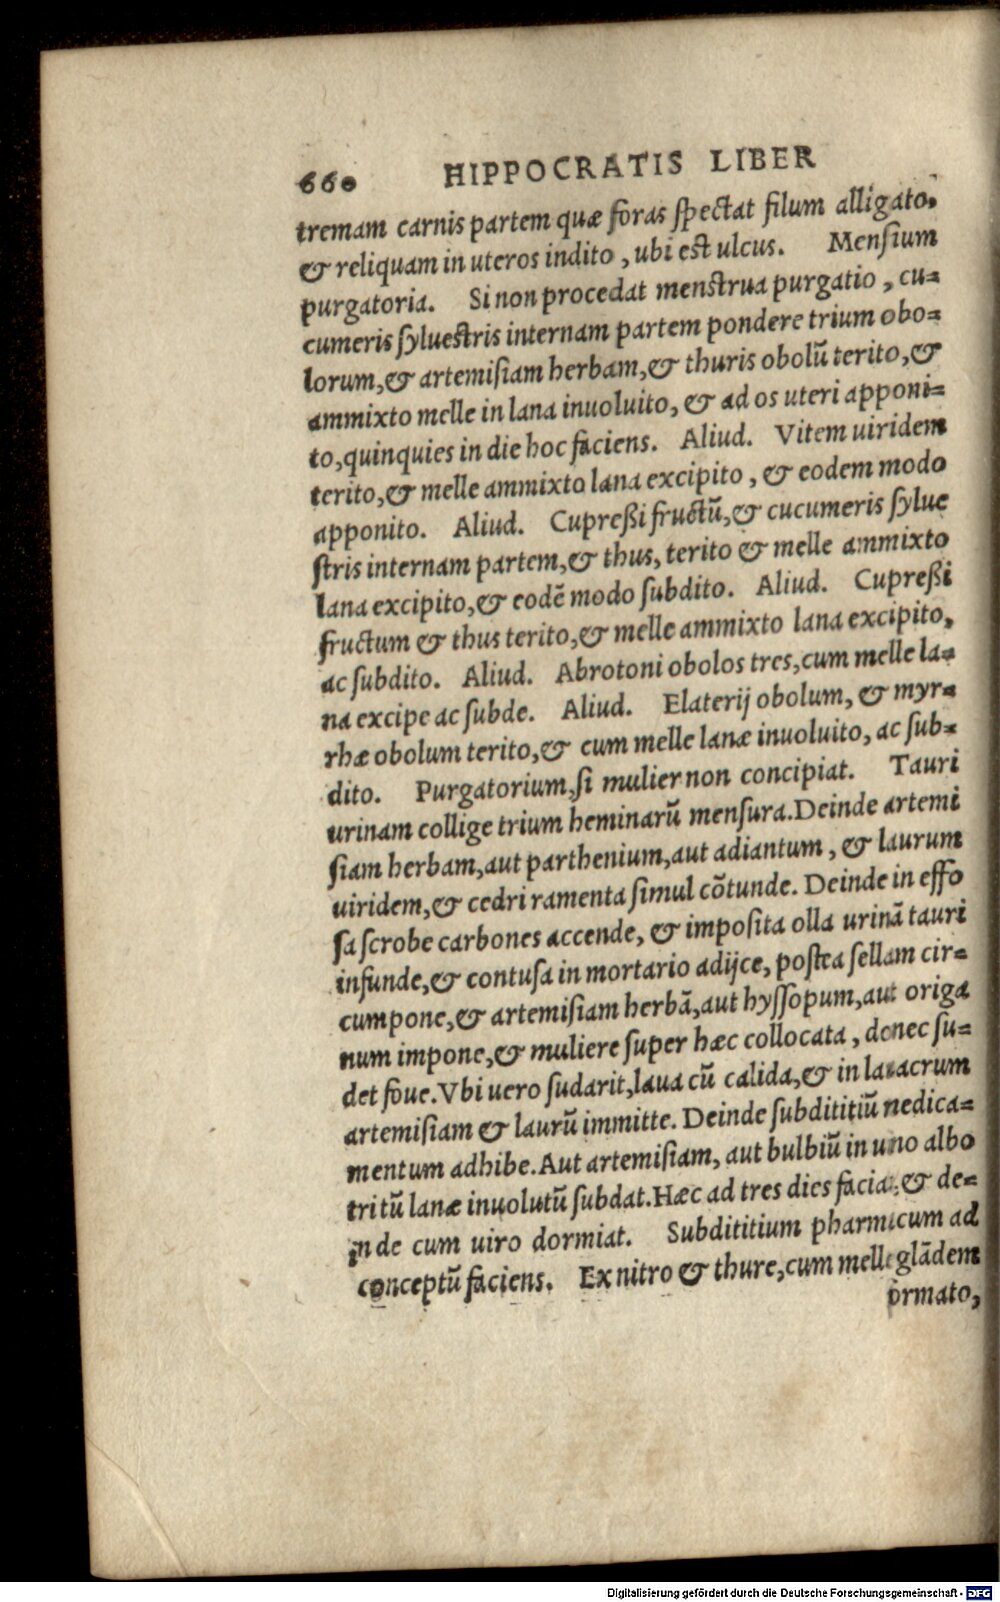 660 HIPPOCRATIS LIBER
tremam carnis partem quæ foras spectat filum alligato,
& reliquam in uteros indito, ubi est ulcus. Mensium
purgatoria. Si non procedat menstrua purgatio, cu=
cumeris syluestris internam partem pondere trium obo=
lorum,& artemisiam herbam,& thuris obolũ terito,&
ammixto melle in lana inuoluito, & ad os uteri apponi=
to,quinquies in die hoc faciens. Aliud. Vitem uiridem
terito,& melle ammixto lana excipito, & eodem modo
apponito. Aliud. Cupreßi fructũ,& cucumeris sylue
stris internam partem,& thus, terito & melle ammixto
lana excipito,& eodẽ modo subdito. Aliud. Cupreßi
fructum & thus terito,& melle ammixto lana excipito,
ac subdito. Aliud. Abrotoni obolos tres,cum melle la=
na excipe ac subde. Aliud. Elaterij obolum, & myr=
rhæ obolum terito,& cum melle lanæ inuoluito, ac sub=
dito. Purgatorium,si mulier non concipiat. Tauri
urinam collige trium heminarũ mensura.Deinde artemi
siam herbam,aut parthenium,aut adiantum, & laurum
uiridem,& cedri ramenta simul cõtunde. Deinde in effo
sa scrobe carbones accende, & imposita olla urinã tauri
infunde,& contusa in mortario adijce, postea sellam cir=
cumpone,& artemisiam herbã,aut hyssopum,aut origa
num impone,& muliere super hæc collocata, donec su=
det foue.Vbi uero sudarit,laua cũ calida,& in lauacrum
artemisiam & laurũ immitte. Deinde subdititiũ medica=
mentum adhibe.Aut artemisiam, aut bulbiũ in uino albo
tritũ lanæ inuolutũ subdat.Hæc ad tres dies faciat,& de=
inde cum uiro dormiat. Subdititium pharmacum ad
conceptũ faciens. Ex nitro & thure,cum melle glãdem
ormato,
Digitalisierung gefördert durch die Deutsche Forschungsgemeinschaft - DFG